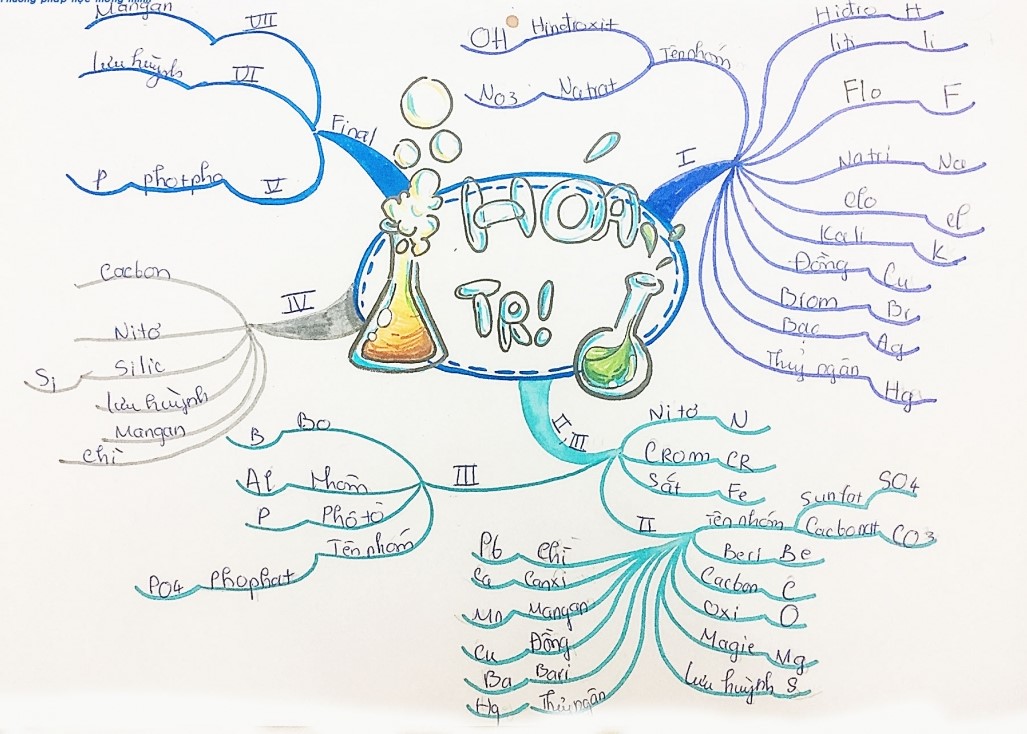 HOÁ
TRỊ!
I
Tên nhóm
OH Hiđroxit
NO3 Natrat
Hiđro H
liti li
Flo F
Natri Na
clo cl
Kali K
Đồng Cu
Brom Br
Bạc Ag
Thuỷ ngân Hg
II, III
Nitơ N
CRom CR
Sắt Fe
II
Tên nhóm
Sunfat SO4
Cacbonat CO3
Beri Be
Cacbon C
Oxi O
Magie Mg
lưu huỳnh S
Pb chì
Ca Canxi
Mn Mangan
Cu Đồng
Ba Bari
Hg Thuỷ ngân
III
B Bo
Al Nhôm
P Phôtô
Tên nhóm
PO4 Phophat
IV
Cacbon
Nitơ
Si Silic
lưu huỳnh
Mangan
chì
Final
VII
Mangan
VI
lưu huỳnh
V
P photpho